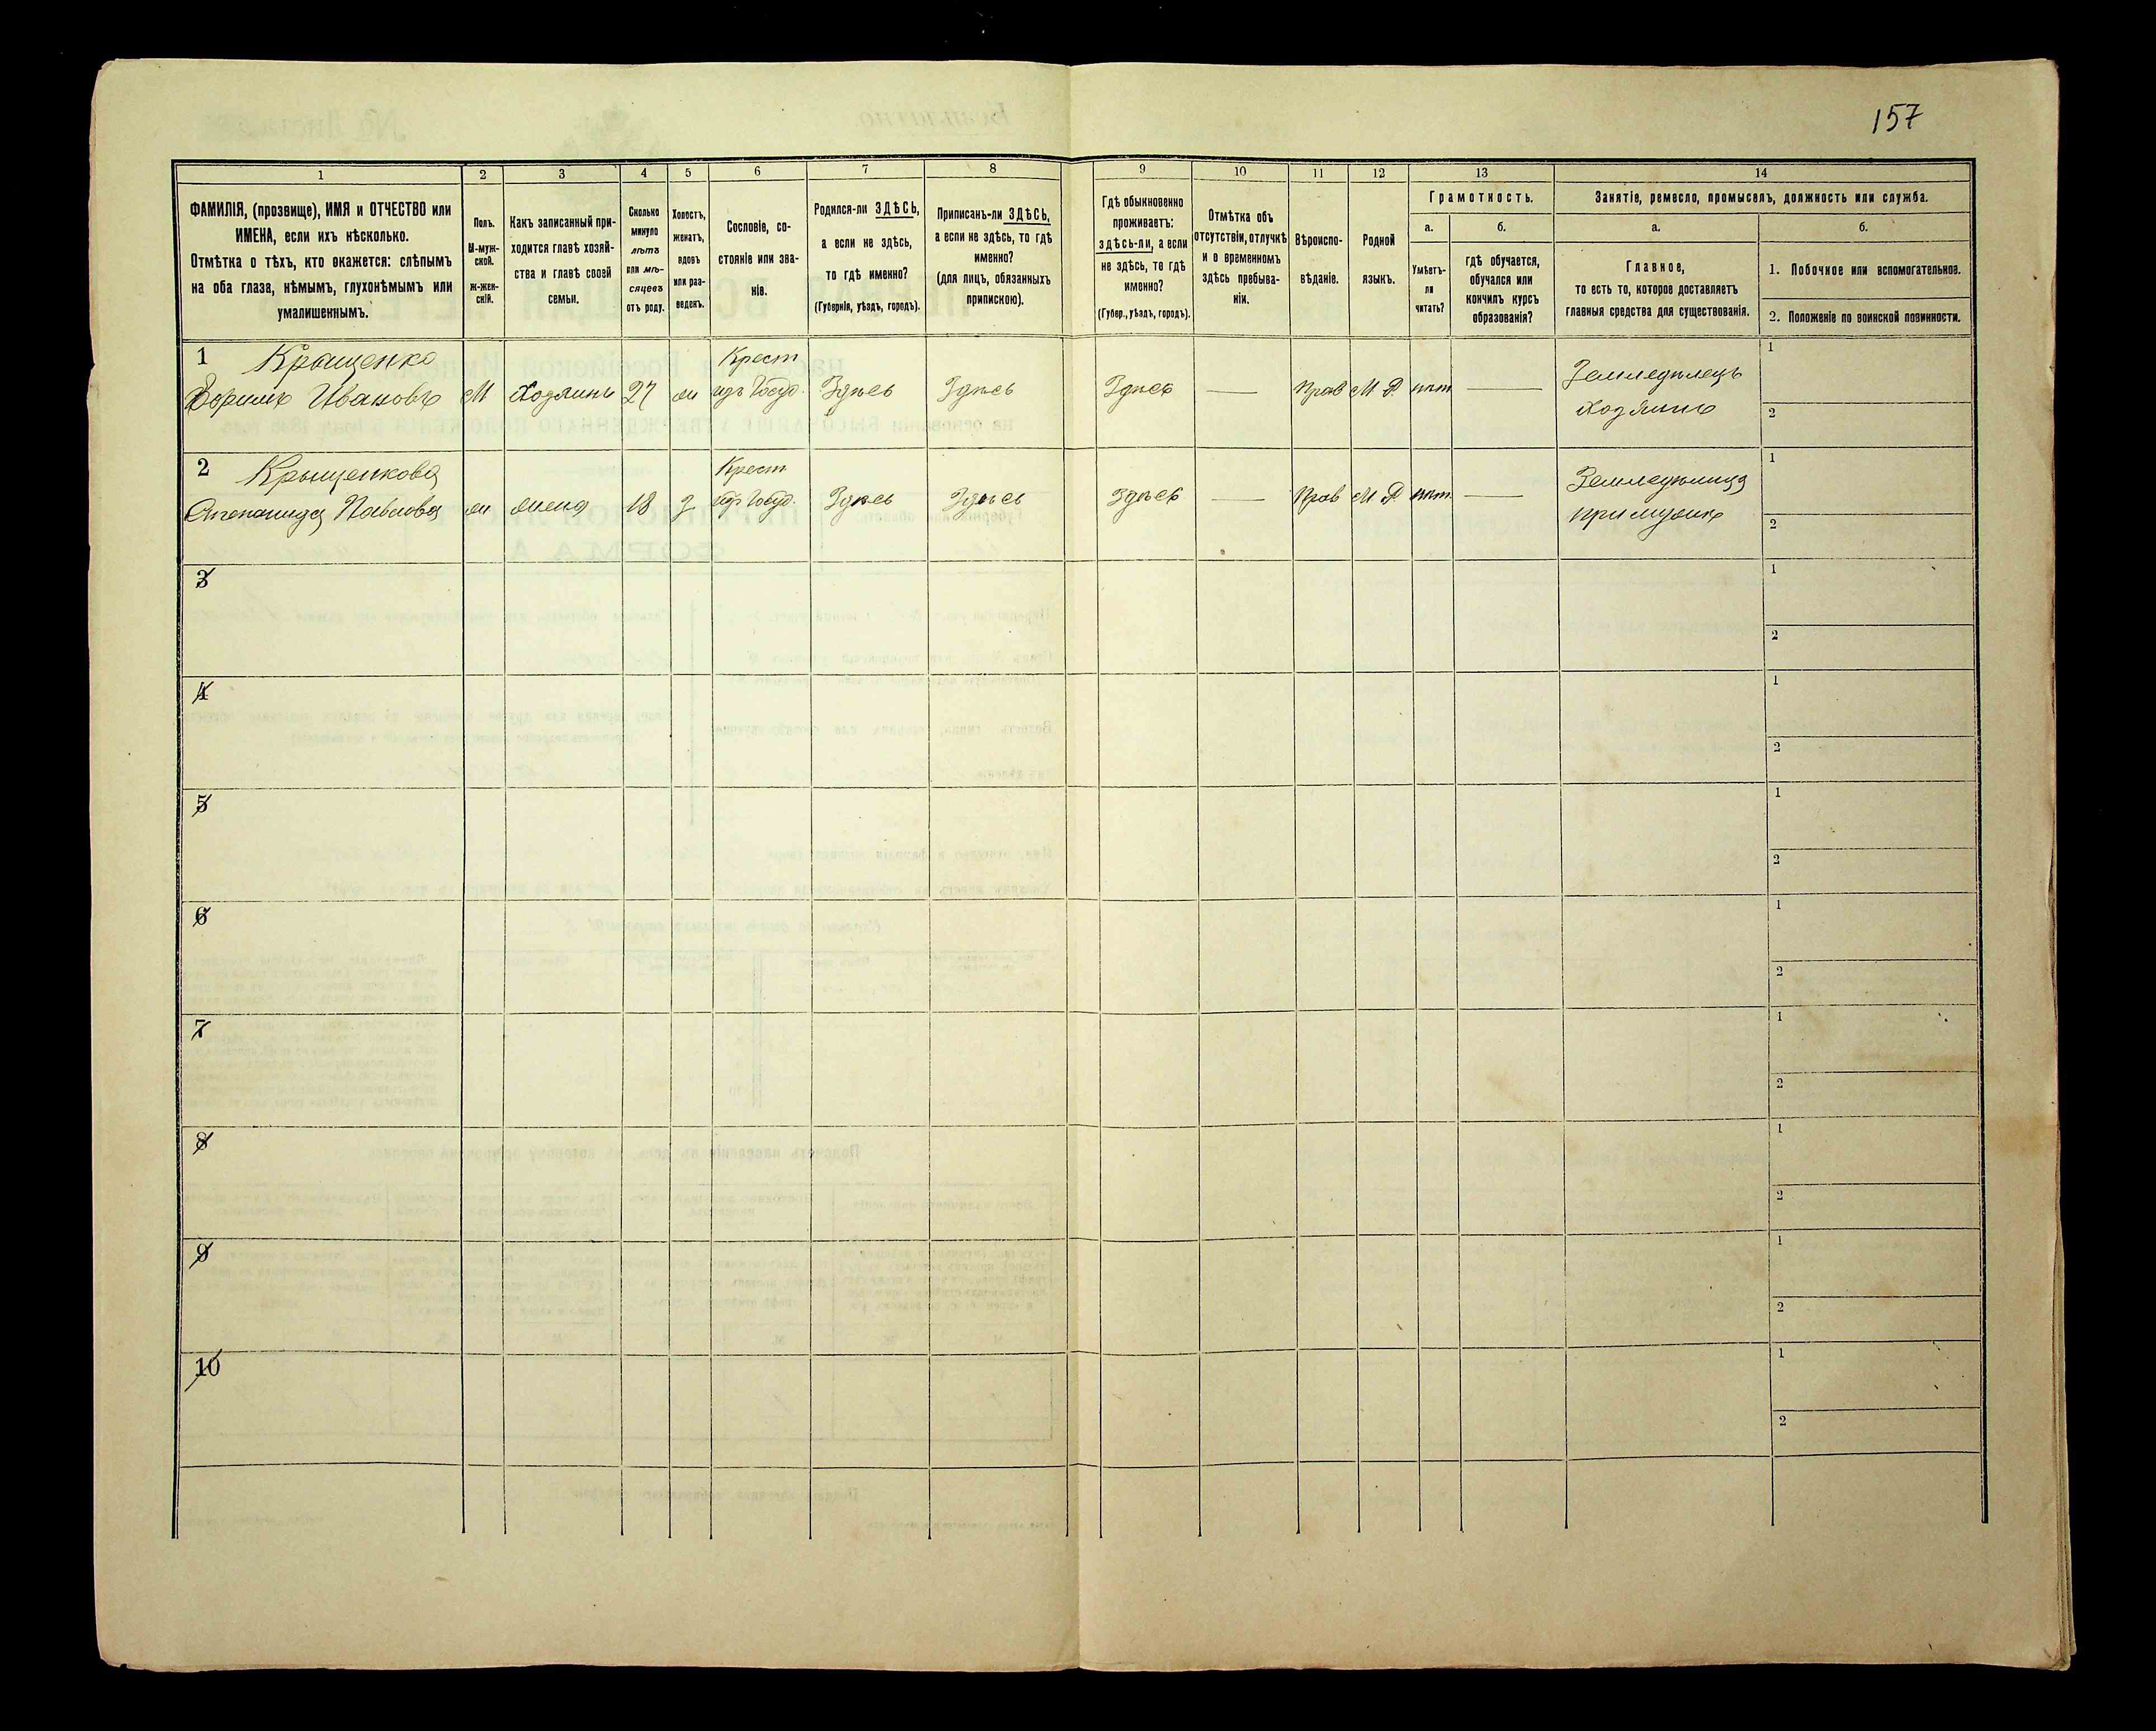 157
1
2
3
4
5
6
7
8
9
10
11
12
13
14
ФАМИЛІЯ, (прозвище), ИМЯ и ОТЧЕСТВО или
ИМЕНА, если ихъ нѣсколько.
Отмѣтка о тѣхъ, кто окажется: слѣпымъ
на оба глаза, нѣмымъ, глухонѣмымъ или
умалишеннымъ.
Полъ.
М-муж-
ской.
ж-жен-
скій.
Какъ записанный при-
ходится главѣ хозяй-
ства и главѣ своей
семьи.
Сколько
минуло
лѣтъ
или мѣ-
сяцевъ
отъ роду.
Холостъ,
женатъ,
вдовъ
или раз-
веденъ.
Сословіе, со-
стояніе или зва-
ніе.
Родился-ли ЗДѢСЬ,
а если не здѣсь,
то гдѣ именно?
(Губернія, уѣздъ, городъ).
Приписанъ-ли ЗДѢСЬ,
а если не здѣсь, то гдѣ
именно?
(для лицъ, обязанныхъ
припискою).
Гдѣ обыкновенно
проживаетъ:
здѣсь-ли, а если
не здѣсь, то гдѣ
именно?
(Губер., уѣздъ, городъ).
Отмѣтка объ
отсутствіи, отлучкѣ
и о временномъ
здѣсь пребыва-
ніи.
Вѣроиспо-
вѣданіе.
Родной
языкъ.
Грамотность.
а.
Умѣетъ-
ли
читать?
б.
гдѣ обучается,
обучался или
кончилъ курсъ
образованія?
Занятіе, ремесло, промыселъ, должность или служба.
а.
Главное,
то есть то, которое доставляетъ
главныя средства для существованія.
б.
1. Побочное или вспомогательное.
2. Положеніе по воинской повинности.
1 Крыщенко Крест
Ивановъ М Хозяинъ 27 изъ Госуд. Здѣсь Здѣсь Здѣсь — Прав М Р нѣт — Земледѣлецъ
хозяинъ
1
2
2 Крыщенкова Крест
Павлова жена 18 Госуд. Здѣсь Здѣсь Здѣсь — Прав М Р нѣт — Земледѣлица
при мужѣ
1
2
3
1
2
4
1
2
5
1
2
6
1
2
7
1
2
8
1
2
9
1
2
10
1
2